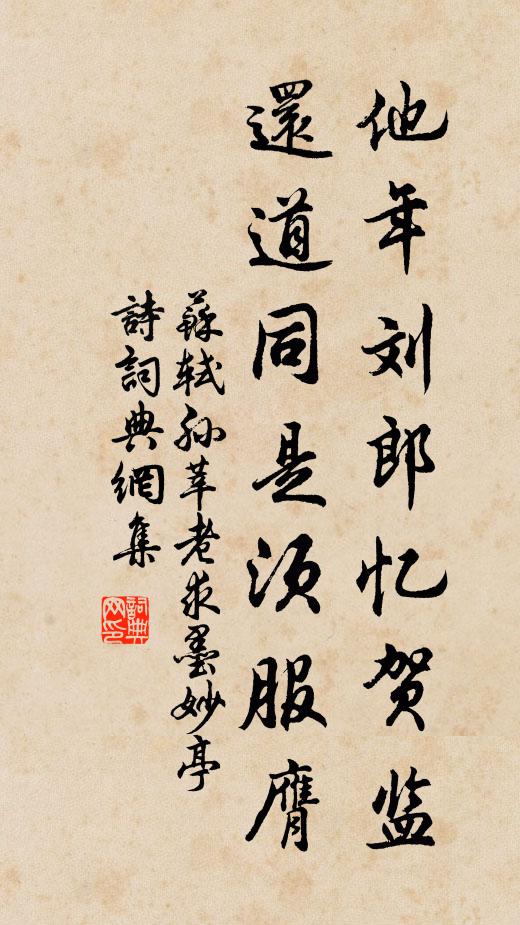 他年刘郎忆贺监
還道同是須服膺
蘇軾孙莘老求墨妙亭
詩詞典網集
詞典网印